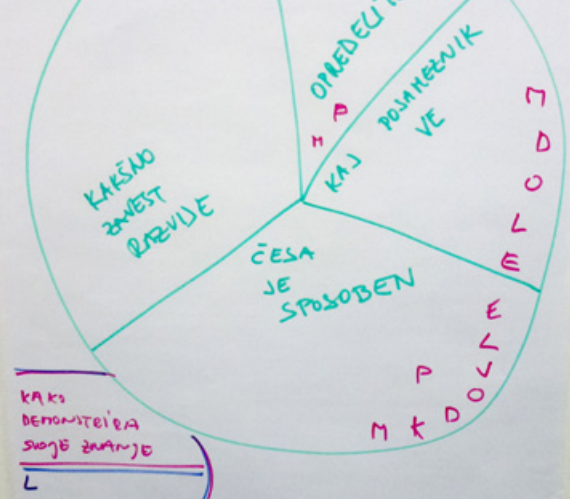 OPREDELI
P
M
KAJ POSAMEZNIK
VE
M
D
O
L
E
KAKŠNO
ZAVEST
RAZVIJE
ČESA
JE
SPOSOBEN
E
L
V
O
D
K
M
P
KAKO
DEMONSTRIRA
SVOJE ZNANJE
L